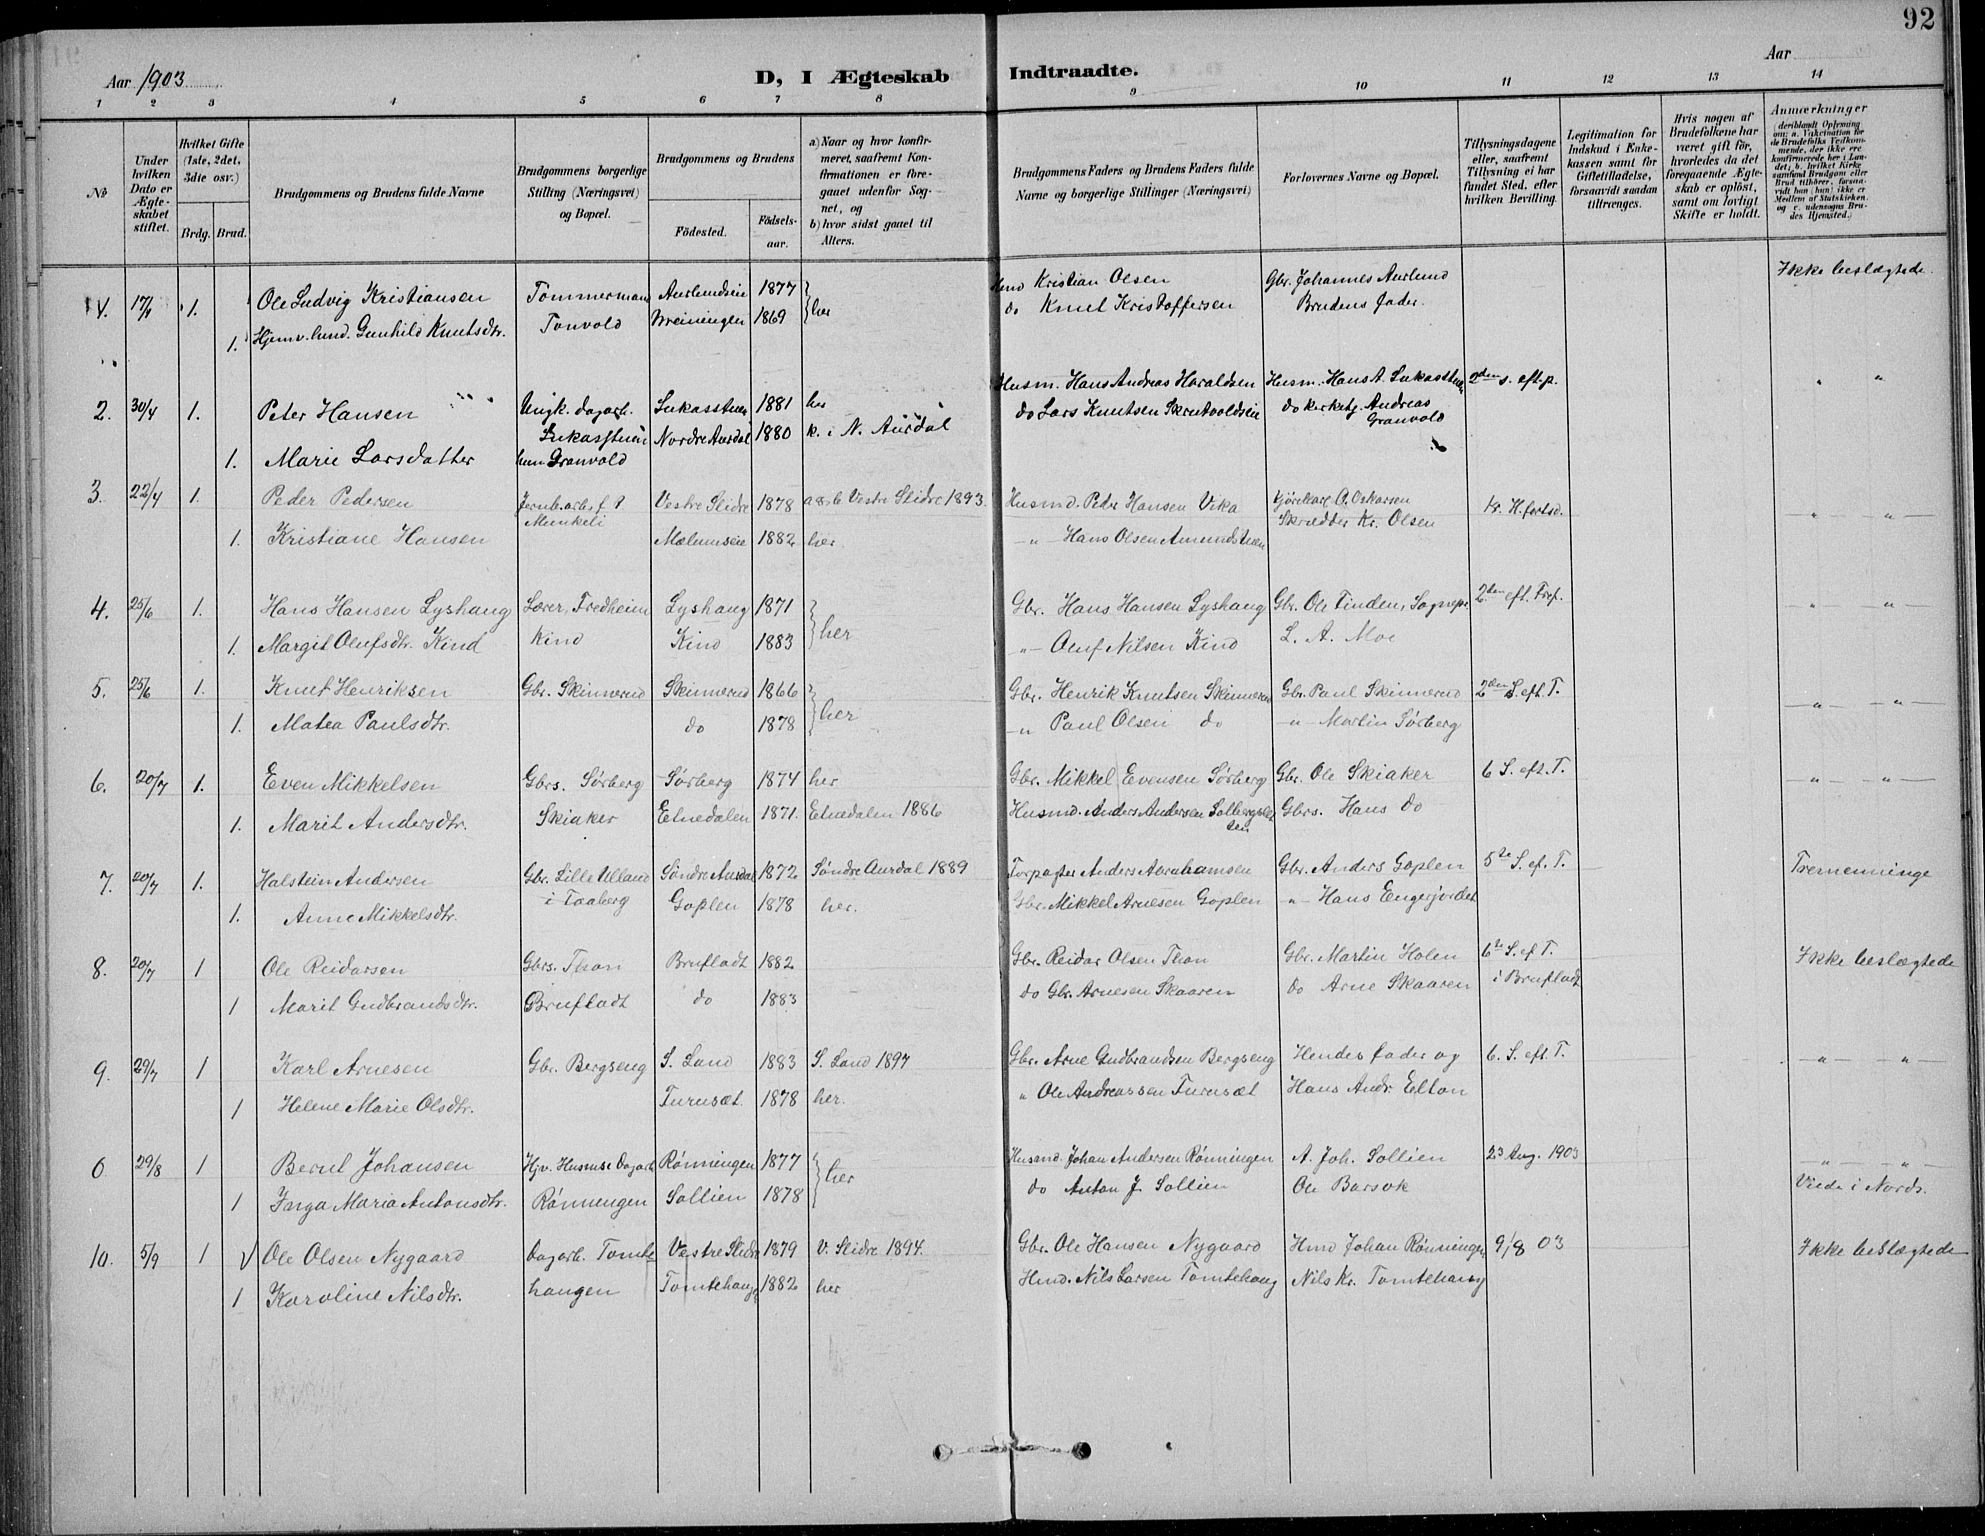 92
Aar 1903
D, I Ægteskab Indtraadte.
Aar
1 2 3 4 5 6 7 8 9 10 11 12 13 14
No
Under hvilken Dato er Ægteskabet stiftet.
Hvilket Gifte (1ste, 2det, 3die osv.)
Brdg. Brud.
Brudgommens og Brudens fulde Navne
Brudgommens borgerlige Stilling (Næringsvei) og Bopæl.
Brudgommens og Brudens
Födested.
Födselsaar.
a) Naar og hvor konfirmeret, saafremt Konfirmationen er foregaaet udenfor Sognet, og
b) hvor sidst gaaet til Alters.
Brudgommens Faders og Brudens Faders fulde Navne og borgerlige Stillinger (Næringsvei)
Forlovernes Navne og Bopæl.
Tillysningsdagene eller, saafremt Tillysning ei har fundet Sted, efter hvilken Bevilling.
Legitimation for Indskud i Enkekassen samt for Giftetilladelse, forsaavidt saadan tiltrænges.
Hvis nogen af Brudefolkene har været gift för, hvorledes da det foregaaende Ægteskab er oplöst, samt om lovligt Skifte er holdt.
Anmærkninger (deriblandt Oplysning om: a. Vakcination for de Brudefolks Vedkommende, der ikke ere konfirmerede her i Landet; b. hvilket Kirkesamfund Brudgom eller Brud tilhörer, forsaavidt han (hun) ikke er Medlem af Statskirken, og c. udensogns Brudes Hjemsted.)
1. 17/1 1. Ole Ludvig Kristiansen Tømmermand Aurlundseie 1877 her Hmd Kristian Olsen Gbr. Johannes Aurlund Ikke beslægtede.
1. Hjemv. lund. Gunhild Knutsdtr. Tonvold Breiningen 1869 do Knut Kristoffersen Brudens fader.
2. 30/4 1. Peter Hansen Ungk. dagarb. Lukasstuen 1881 her Husm. Hans Andreas Haraldsen Husm. Hans A. Lukasstuen 2den s. eft. p. " "
1. Marie Larsdatter Lukasstuen hun Granvold Nordre Aurdal 1880 k. i N. Aurdal do Lars Knutsen Skrutvoldseie do kirketj. Andreas Granvold
3. 22/4 1. Peder Pedersen Jernb.arb. f. P. Munkeli Vestre Slidre 1878 a & b Vestre Slidre 1893. Husmd. Peder Hansen Vika Kjørekarl O. Oskarsen Kr. H. fortsd. " "
1. Kristiane Hansen Mælumseie 1882 her. " Hans Olsen Amundstuen Skrædder Kr. Olsen
4. 25/6 1. Hans Hansen Lyshaug Lærer, Fredheim Lyshaug 1871 her Gbr. Hans Hansen Lyshaug Gbr. Ole Tinden, Sognepr. 2den eft. Tref. " "
1. Margit Olufsdtr. Kind Kind Kind 1883 " Oluf Nilsen Kind L. A. Moe
5. 25/6 1. Knut Henriksen Gbr. Skinnerud Skinnerud 1866 her Gbr. Henrik Knutsen Skinnerud Gbr. Paul Skinnerud 2den S. eft. T. " "
1. Matea Paulsdtr. do 1878 " Paul Olsen do " Martin Sørberg
6. 20/7 1. Even Mikkelsen Gbrs. Sørberg Sørberg 1874 her Gbr. Mikkel Evensen Sørberg Gbr. Ole Skiaker 6 S. eft. T. " "
1. Marit Andersdtr. Skiaker Etnedalen 1871. Etnedalen 1886 Husmd. Anders Andersen Gbrs. Hans do
7. 20/7 1. Halstein Andersen Gbr. Lille Ulland Søndre Aurdal 1872 Søndre Aurdal 1889 Forpagter Anders Abrahamsen Gbr. Anders Goplen 5te S. ef. T. Tremenninge
1. Anne Mikkelsdtr. i Faaberg Goplen 1878 her. Gbr. Mikkel Arnesen Goplen " Hans Engerjordet
8. 20/7 1 Ole Reidarsen Gbrs. Thon Brufladt 1882 Gbr. Reidar Olsen Thon Gbr. Martin Holen 6te S. ef. T. Ikke beslægtede
1 Marit Gudbrandsdtr. Brufladt do 1883 do Gbr. Arnesen Skaaren do Arne Skaaren i Brufladt
9. 29/7 1 Karl Arnesen Gbr. Bergseng S. Land 1883 S. Land 1897 Gbr. Arne Gudbrandsen Bergseng Hendes fader og 6. S. eft. T. " "
1 Helene Marie Olsdtr. Furusæt. 1878 her. " Ole Andreassen Furusæt Hans Andr. Elton
6. 29/8 1 Bernt Johansen Hjv. Husmse Dagarb. Rønningen 1877 her Husmd. Johan Andersen Rønningen A. Joh. Sollien 23 Aug. 1903 " "
1 Inga Maria Antonsdtr. Rønningen Sollien 1878 do Anton J. Sollien Ole Barsok Viede i Nords.
10. 5/9 1 Ole Olsen Nygaard Dagarb. Tomte- Vestre Slidre 1879 V. Slidre 1894. Gbr. Ole Hansen Nygaard Hmd Johan Rønningen 9/8 03 Ikke beslægtede
1 Karoline Nilsdtr. haugen Tomtehaugen 1882 her Hmd. Nils Larsen Tomtehaug Nils Kr. Tomtehaug